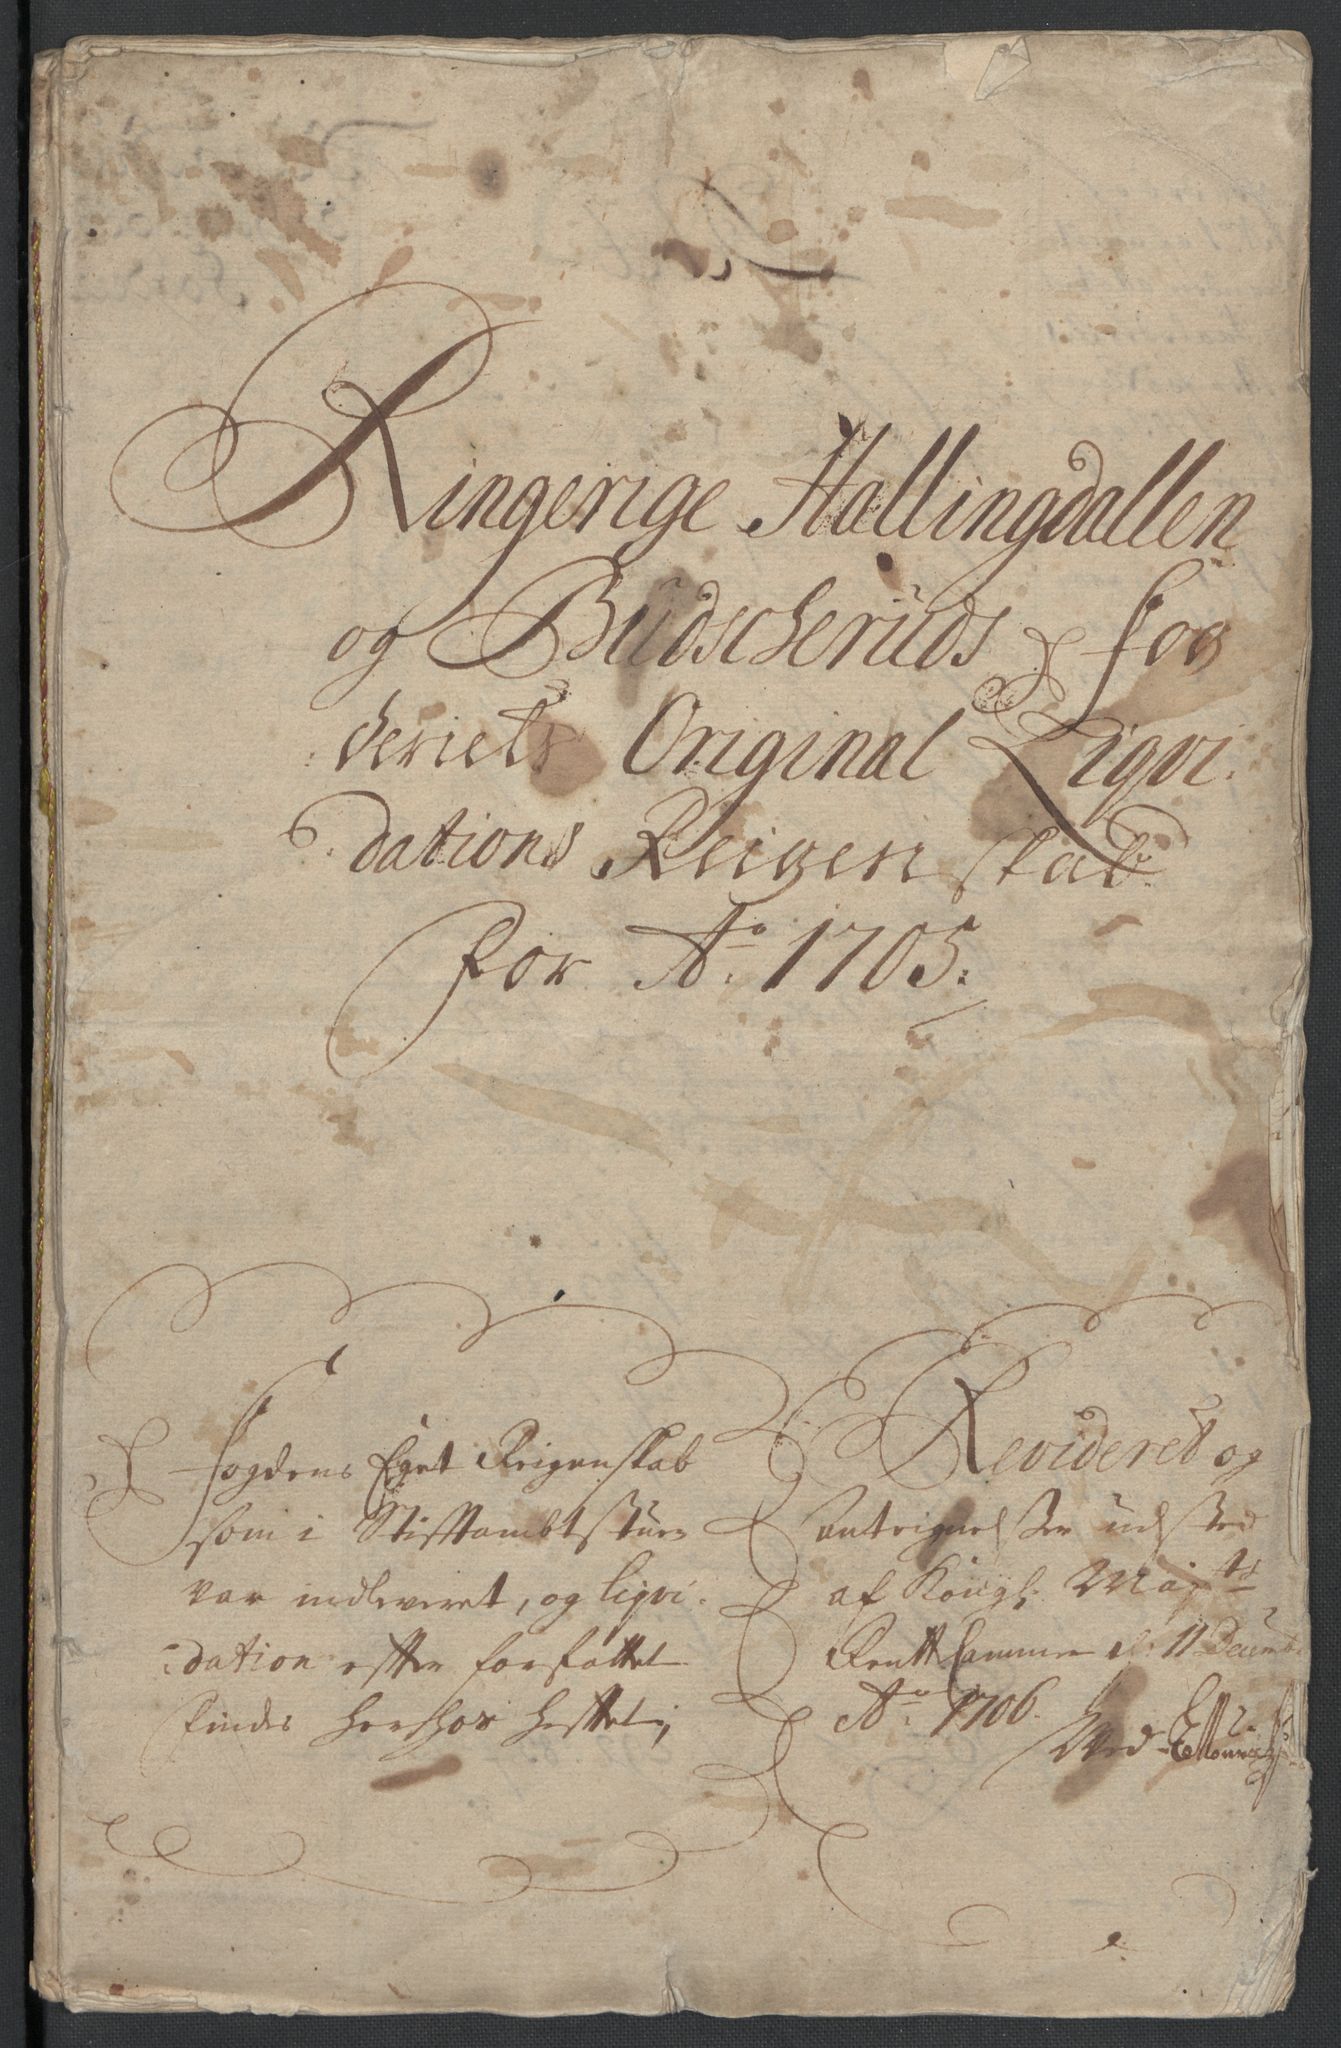 Ringerige Hallingdallen
og Budscheruds fog
deriets Original Liqvi-
dations Reigenskab
for Ao. 1705.
fogdens Eget Reigenskab
som i Stiftambtstuen
var indleveret, og liqvi-
dation efter forfattet
findes herhos heftet;
Revideret og
antegnelser udsted
af Kongl. Mayts
Rentte Cammer d. 11 Decemb
Ao. 1706.